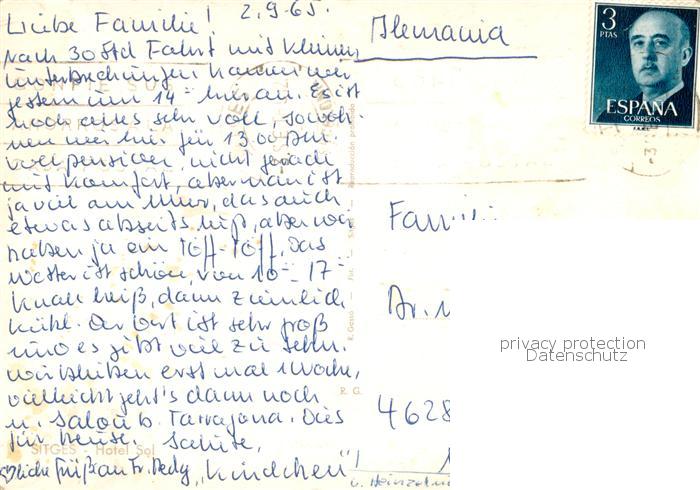 Liebe Familie! 2.9.65.
Nach 30 Std Fahrt mit kleinen
Unterbrechungen kamen wir
gestern um 14 hier an. Es ist
noch alles sehr voll, so woh-
nen wir hier für 13.00 DM.
Vollpension, nicht gerade
mit Komfort, aber man ist
ja viel am Meer, das auch
etwas abseits ließ, aber wir
haben ja ein Töff-Töff. Das
Wetter ist schön, von 10 - 17
knall heiß, dann ziemlich
kühl. Der Ort ist sehr groß
und es gibt viel zu sehn.
Wir bleiben erst mal 1 Woche,
vielleicht geht's dann noch
n. Salou b. Tarragona. Dies
für heute. Salute,
liche Grüße an Fr. Hedy, "Kindchen"
Alemania
3
PTAS
ESPAÑA
CORREOS
Fam
Dr.
4628
privacy protection
Datenschutz
SITGES - Hotel Sol
R. G.